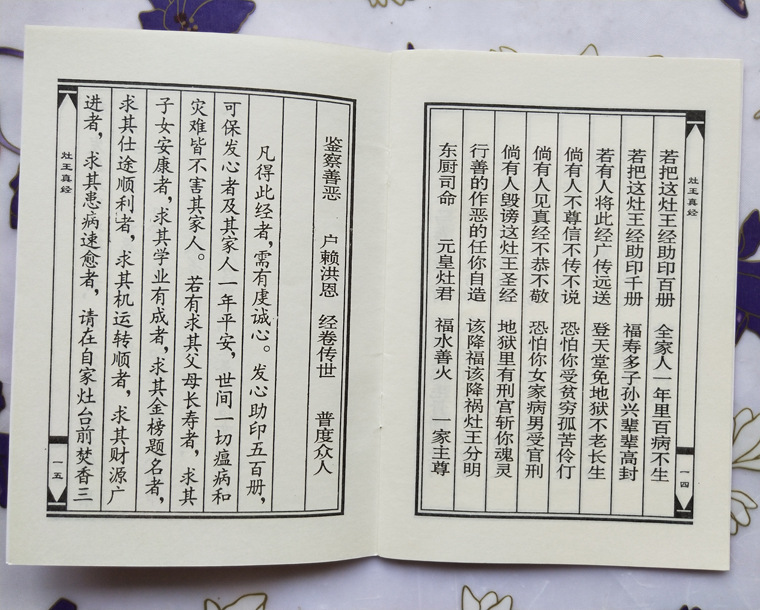 灶王真经
若把这灶王经助印百册　全家人一年里百病不生
若把这灶王经助印千册　福寿多子孙兴辈辈高封
若有人将此经广传远送　登天堂免地狱不老长生
倘有人不尊信不传不说　恐怕你受贫穷孤苦伶仃
倘有人见真经不恭不敬　恐怕你女家病男受官刑
倘有人毁谤这灶王圣经　地狱里有刑宫斩你魂灵
行善的作恶的任你自造　该降福该降祸灶王分明
东厨司命　元皇灶君　福水善火　一家主尊
一四
鉴察善恶　户赖洪恩　经卷传世　普度众人
凡得此经者，需有虔诚心。发心助印五百册，
可保发心者及其家人一年平安，世间一切瘟病和
灾难皆不害其家人。若有求其父母长寿者，求其
子女安康者，求其学业有成者，求其金榜题名者，
求其仕途顺利者，求其机运转顺者，求其财源广
进者，求其患病速愈者，请在自家灶台前焚香三
灶王真经
一五